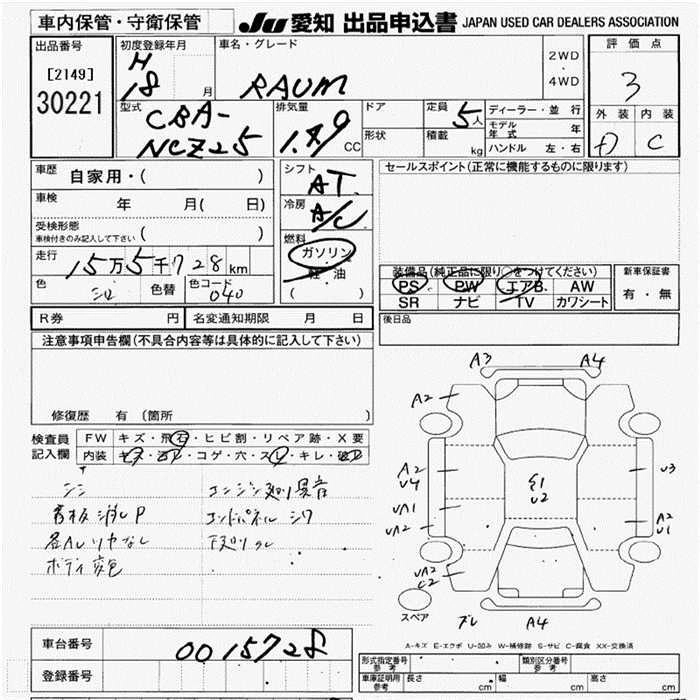 車内保管・守衛保管
JU 愛知 出品申込書 JAPAN USED CAR DEALERS ASSOCIATION
出品番号
[2149]
30221
初度登録年月
H
18 月
車名・グレード
RAUM
2WD
・
4WD
評価点
3
外装 内装
D C
型式
CBA-
NCZ25
排気量
1.49 CC
ドア
形状
定員 5人
積載 kg
ディーラー・並行
モデル年式 年
ハンドル 左・右
車歴 自家用・( )
車検 年 月( 日)
受検形態
(車検付きのみ記入して下さい) ( )
走行 15万5千728km
色 シロ 色替 色コード 040
シフト AT
冷房 A/C
燃料
ガソリン
軽・油
( )
セールスポイント(正常に機能するものに限ります)
装備品(純正品に限り○をつけてください)
PS PW エアB AW
SR ナビ TV カワシート
新車保証書
有・無
R券 円 名変通知期限 月 日
後日品
注意事項申告欄(不具合内容等は具体的に記入して下さい)
修復歴 有 (箇所 )
検査員
記入欄
FW キズ・飛石・ヒビ割・リペア跡・X要
内装 キズ・汚レ・コゲ・穴・スレ・キレ・破レ
シミ エンジン廻り異音
看板消しP エンドパネルシワ
各ALリヤなし 下廻りサビ
ボディ変色
A3 A4
A2
A2
U4
UA1
UA2
UA2
C2
E1
U2
U3
A2
U1
スペア
ズレ A4
A-キズ E-エクボ U-凹み W-補修跡 S-サビ C-腐食 XX-交換済
車台番号 0015728
登録番号
形式指定番号 参考
類別区分番号 参考
車庫証明用 参考 長さ cm 幅 cm 高さ cm